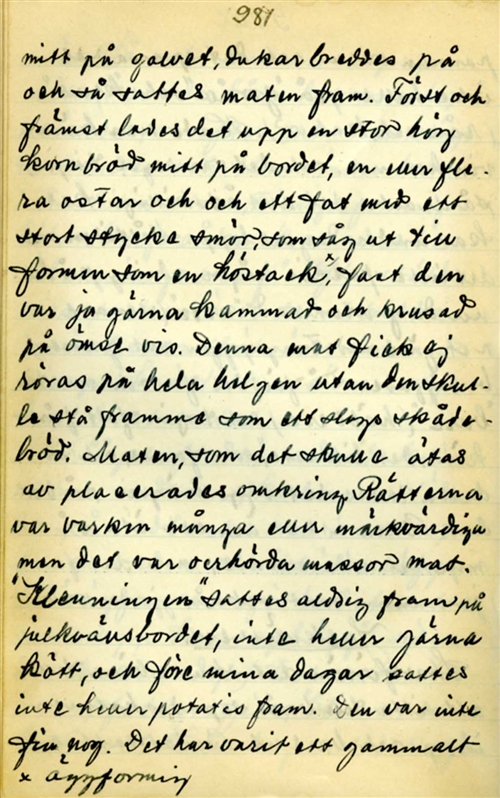 981
mitt på golvet, dukar breddes på
och så sattes maten fram. Först och
främst lades det upp en stor hög
kornbröd mitt på bordet, en eller fle-
ra ostar och och ett fat med ett
stort stycke smör, som såg ut till
formen som en höstack,ˣ fast den
var ju gärna kammad och krusad
på ömse vis. Denna mat fick ej
röras på hela helgen utan den skul-
le stå framme som ett slags skåde-
bröd. Maten, som det skulle ätas
av placerades omkring. Rätterna
var varken många eller märkvärdiga
men det var oerhörda massor mat.
"Klenningen" sattes aldrig fram på
julkvällsbordet, inte heller gärna
kött, och före mina dagar sattes
inte heller potatis fram. Den var inte
fin nog. Det har varit ett gammalt
x äggforming